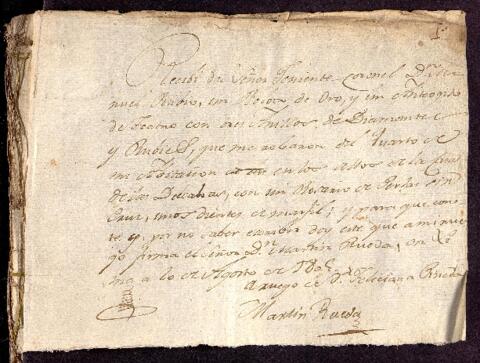 1
Recibi del Señor Teniente Coronel Dn. Ma
nuel Rubio, un Relox de Oro, y un
de con tres Anillos de Diamantes
y Rubies, que me robaron del Quarto de
mi Abitacion en los
de los con un Rosario de Perlas sin
Cruz, unos dientes de marfil; y para que cons
te y por no saber escribir doy este que a mi rue
go firma el Señor Dn. Martin Rueda, en
a 10 de Agosto de
A ruego de Da. Feliciana Rueda
Martin Rueda